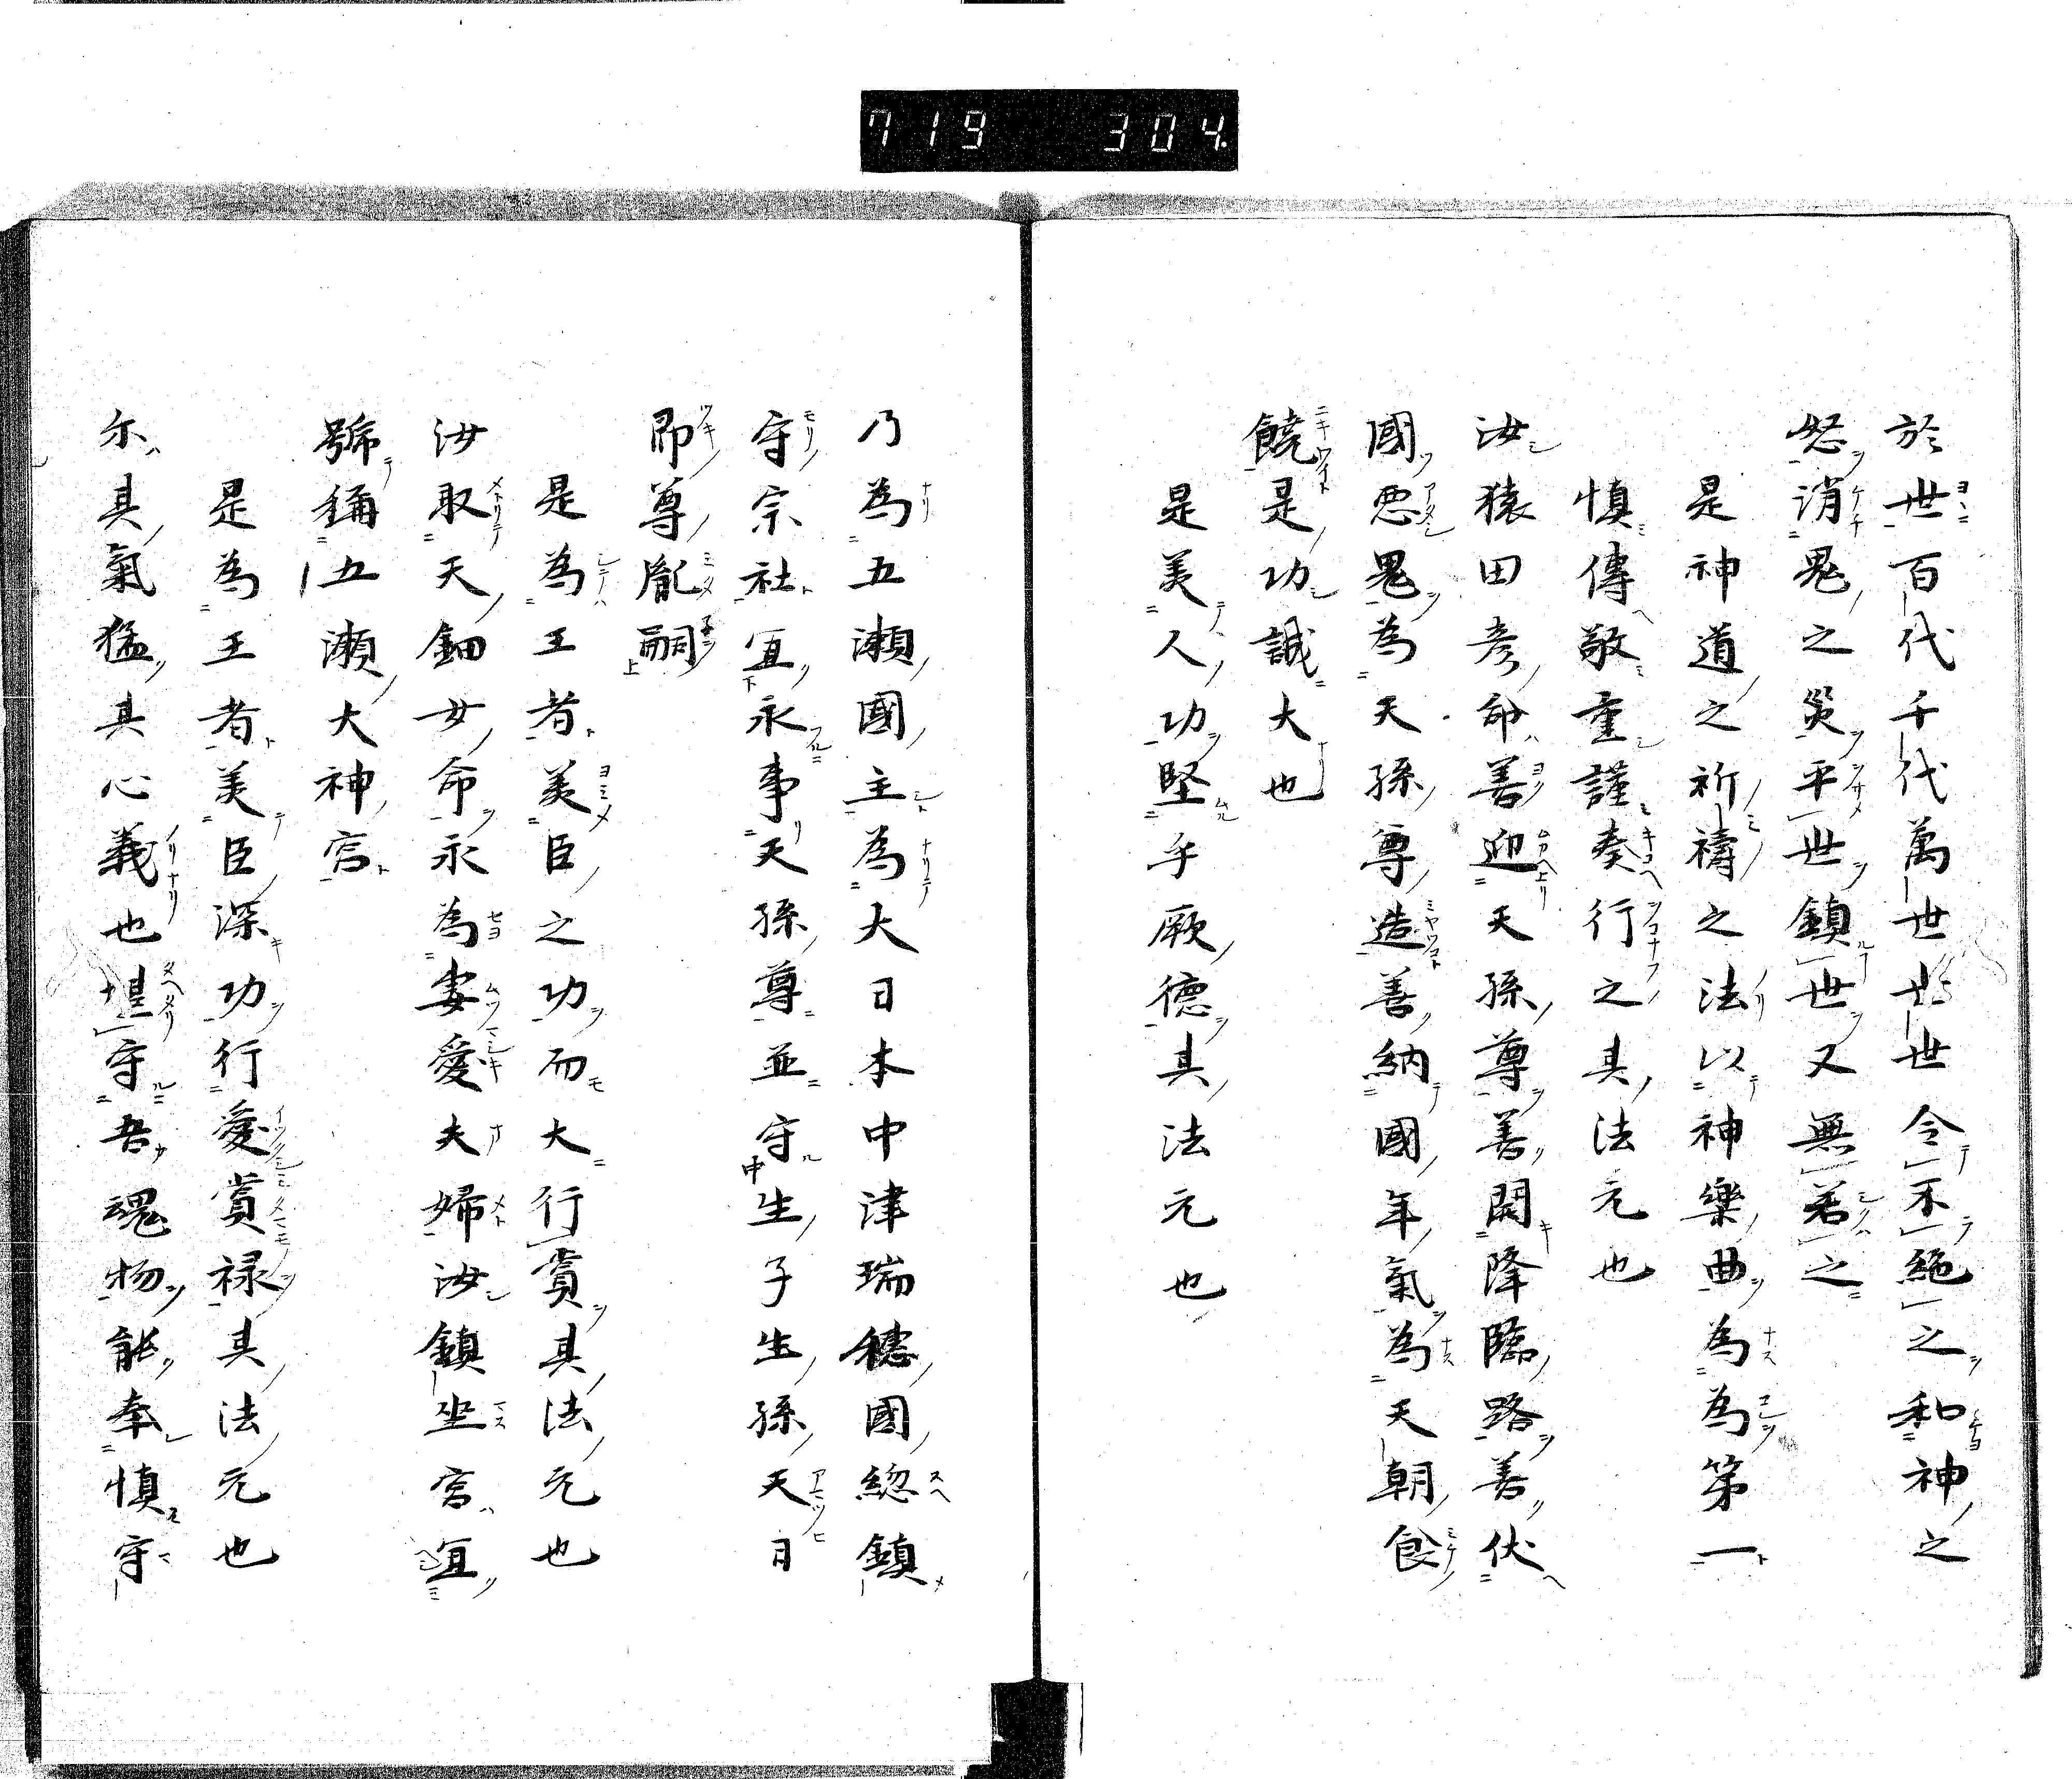 719 304.
於世百代千代萬世世世令不絶之和神之
怒消鬼之災平世鎮世又無若之
是神道之祈禱之法以神樂曲為為第一
慎傳敬重謹奏行之其法元也
汝猿田彦命善迎天孫尊善開降臨路善伏
國惡鬼為天孫尊造善納國年氣為天朝食
饒是功誠大也
是美人功堅乎厥德其法元也
乃為五瀬國主為大日本中津瑞穗國総鎮
守宗社宜永事天孫尊並守生子生孫天日
即尊胤嗣
是為王者美臣之功而大行賞其法元也
汝取天鈿女命永為妻愛夫婦汝鎮坐宮宜
號稱五瀬大神宮
是為王者美臣深功行愛賞禄其法元也
尓其氣猛其心義也堪守吾魂物能奉慎守